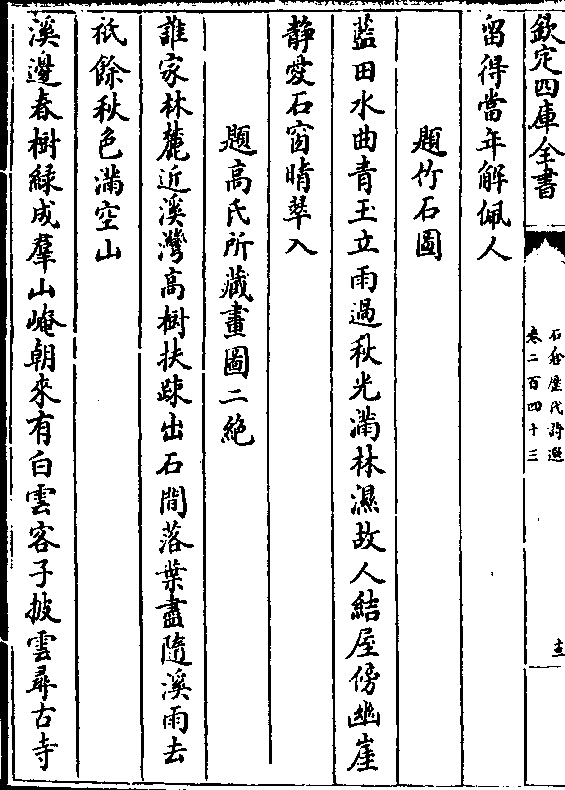 欽定四庫全書
石倉歷代詩選
卷二百四十三
十三
留得當年解佩人
題竹石圖
藍田水曲青玉立雨過秋光滿林濕故人結屋傍幽崖
静愛石窗晴翠入
題高氏所藏畫圖二絶
誰家林麓近溪灣高樹扶踈出石間落葉盡隨溪雨去
祇餘秋色滿空山
溪邊春樹緑成羣山崦朝來有白雲客子披雲尋古寺